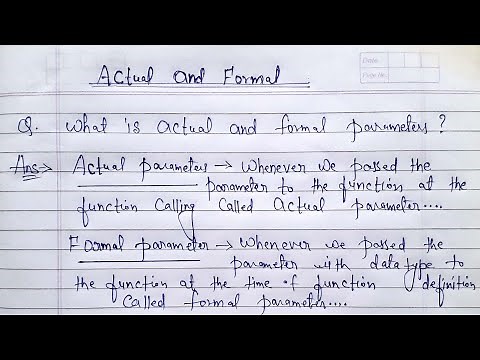 Date
Page No.
Actual and Formal
Q. What is actual and formal parameters?
Ans → Actual parameters → Whenever we passed the
parameter to the function at the
function calling called actual parameter....
Formal parameter → Whenever we passed the
parameter with data type to
the function at the time of function definition
called formal parameter....